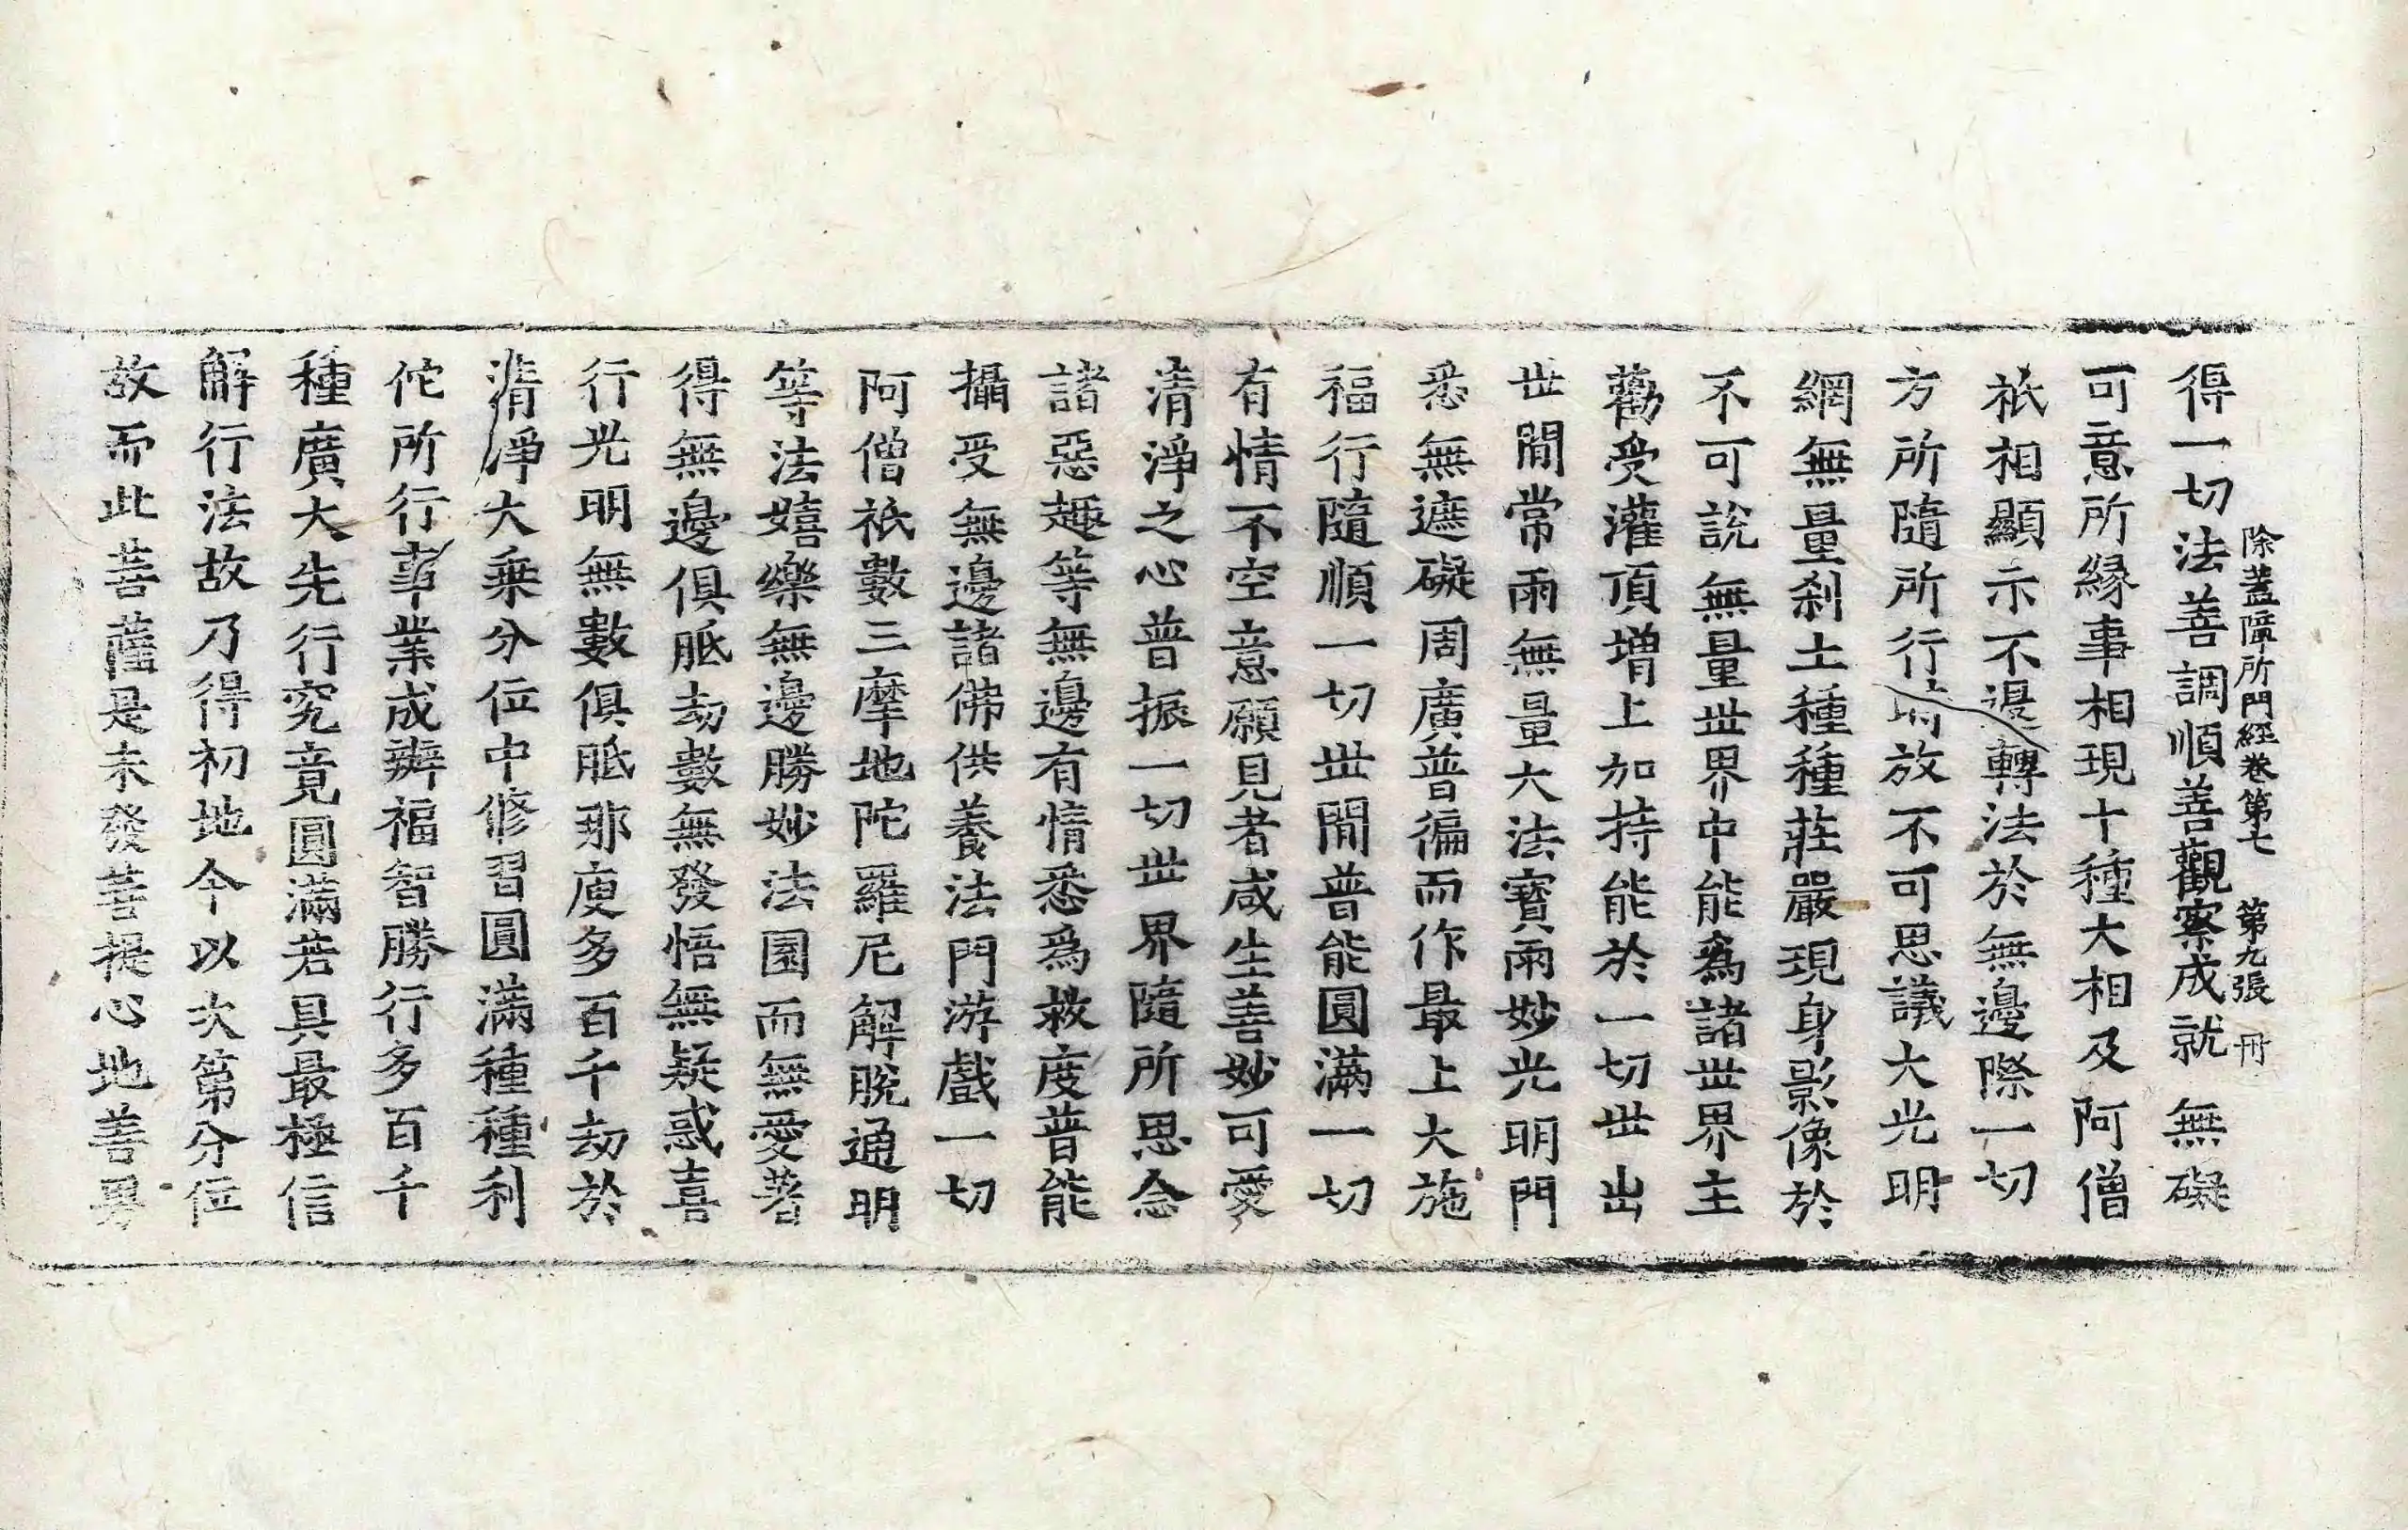 除蓋障所門經卷第七 第九張 冊
得一切法善調順善觀察成就無礙
可意所緣事相現十種大相及阿僧
祇相顯示不退轉法於無邊際一切
方所隨所行 放不可思議大光明
網無量剎土種種莊嚴現身影像於
不可說無量世界中能為諸世界主
勸受灌頂增上加持能於一切世出
世間常雨無量大法寶雨妙光明門
悉無遮礙周廣普徧而作最上大施
福行隨順一切世間普能圓滿一切
有情不空意願見者咸生善妙可愛
清淨之心普振一切世界隨所思念
諸惡趣等無邊有情悉為救度普能
攝受無邊諸佛供養法門游戲一切
阿僧祇數三摩地陀羅尼解脫通明
等法嬉樂無邊勝妙法園而無愛著
得無邊俱胝劫數無發悟無疑惑喜
行光明無數俱胝那庾多百千劫於
清淨大乘分位中修習圓滿種種利
佗所行事業成辦福智勝行多百千
種廣大先行究竟圓滿若具最極信
解行法故乃得初地今以次第分位
故而此菩薩是未發菩提心地善男